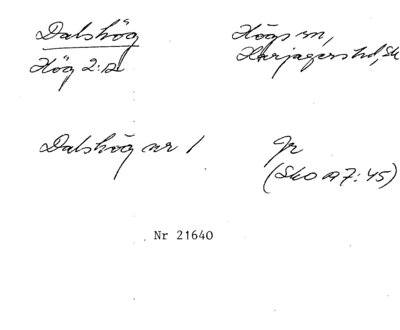 Dalshög
Högs sn,
Hög 2:12
Harjagers hd, Sk
Dalshög nr 1
Jr
(Sko A7:45)
Nr 21640